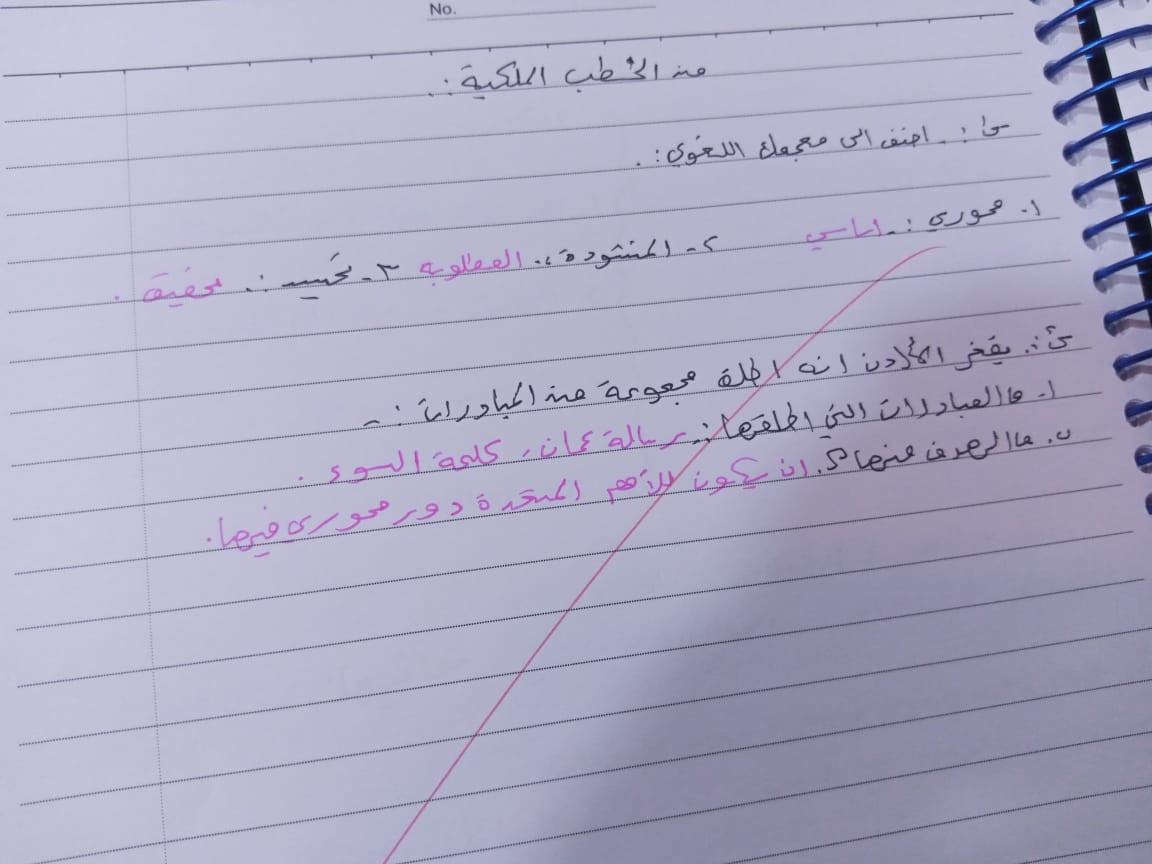 No.
من الخطب الملكية :.
س١ :. اضف الى معجمك اللغوي :.
١. محوري :. اساسي ٢- المنشودة :. المطلوبة ٣- تجسيد :. تحقيق .
س٢ :. يفخر الأردن انه اطلق مجموعة من المبادرات :-
١. ما المبادرات التي اطلقها :. رسالة عمان ، كلمة السوء .
ب. ما الهدف منها ؟. ان يكون للأمم المتحدة دور محوري فيها .